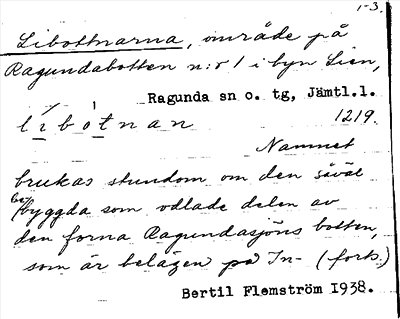 1-3.
Libottnarna, område på
Ragundabotten n:r 1 i byn Lien,
Ragunda sn o. tg, Jämtl.l.
líbotnan 1219.
Namnet
brukas stundom om den såväl
bebyggda som odlade delen av
den forna Ragundasjöns botten,
som är belägen på In- (forts.)
Bertil Flemström 1938.